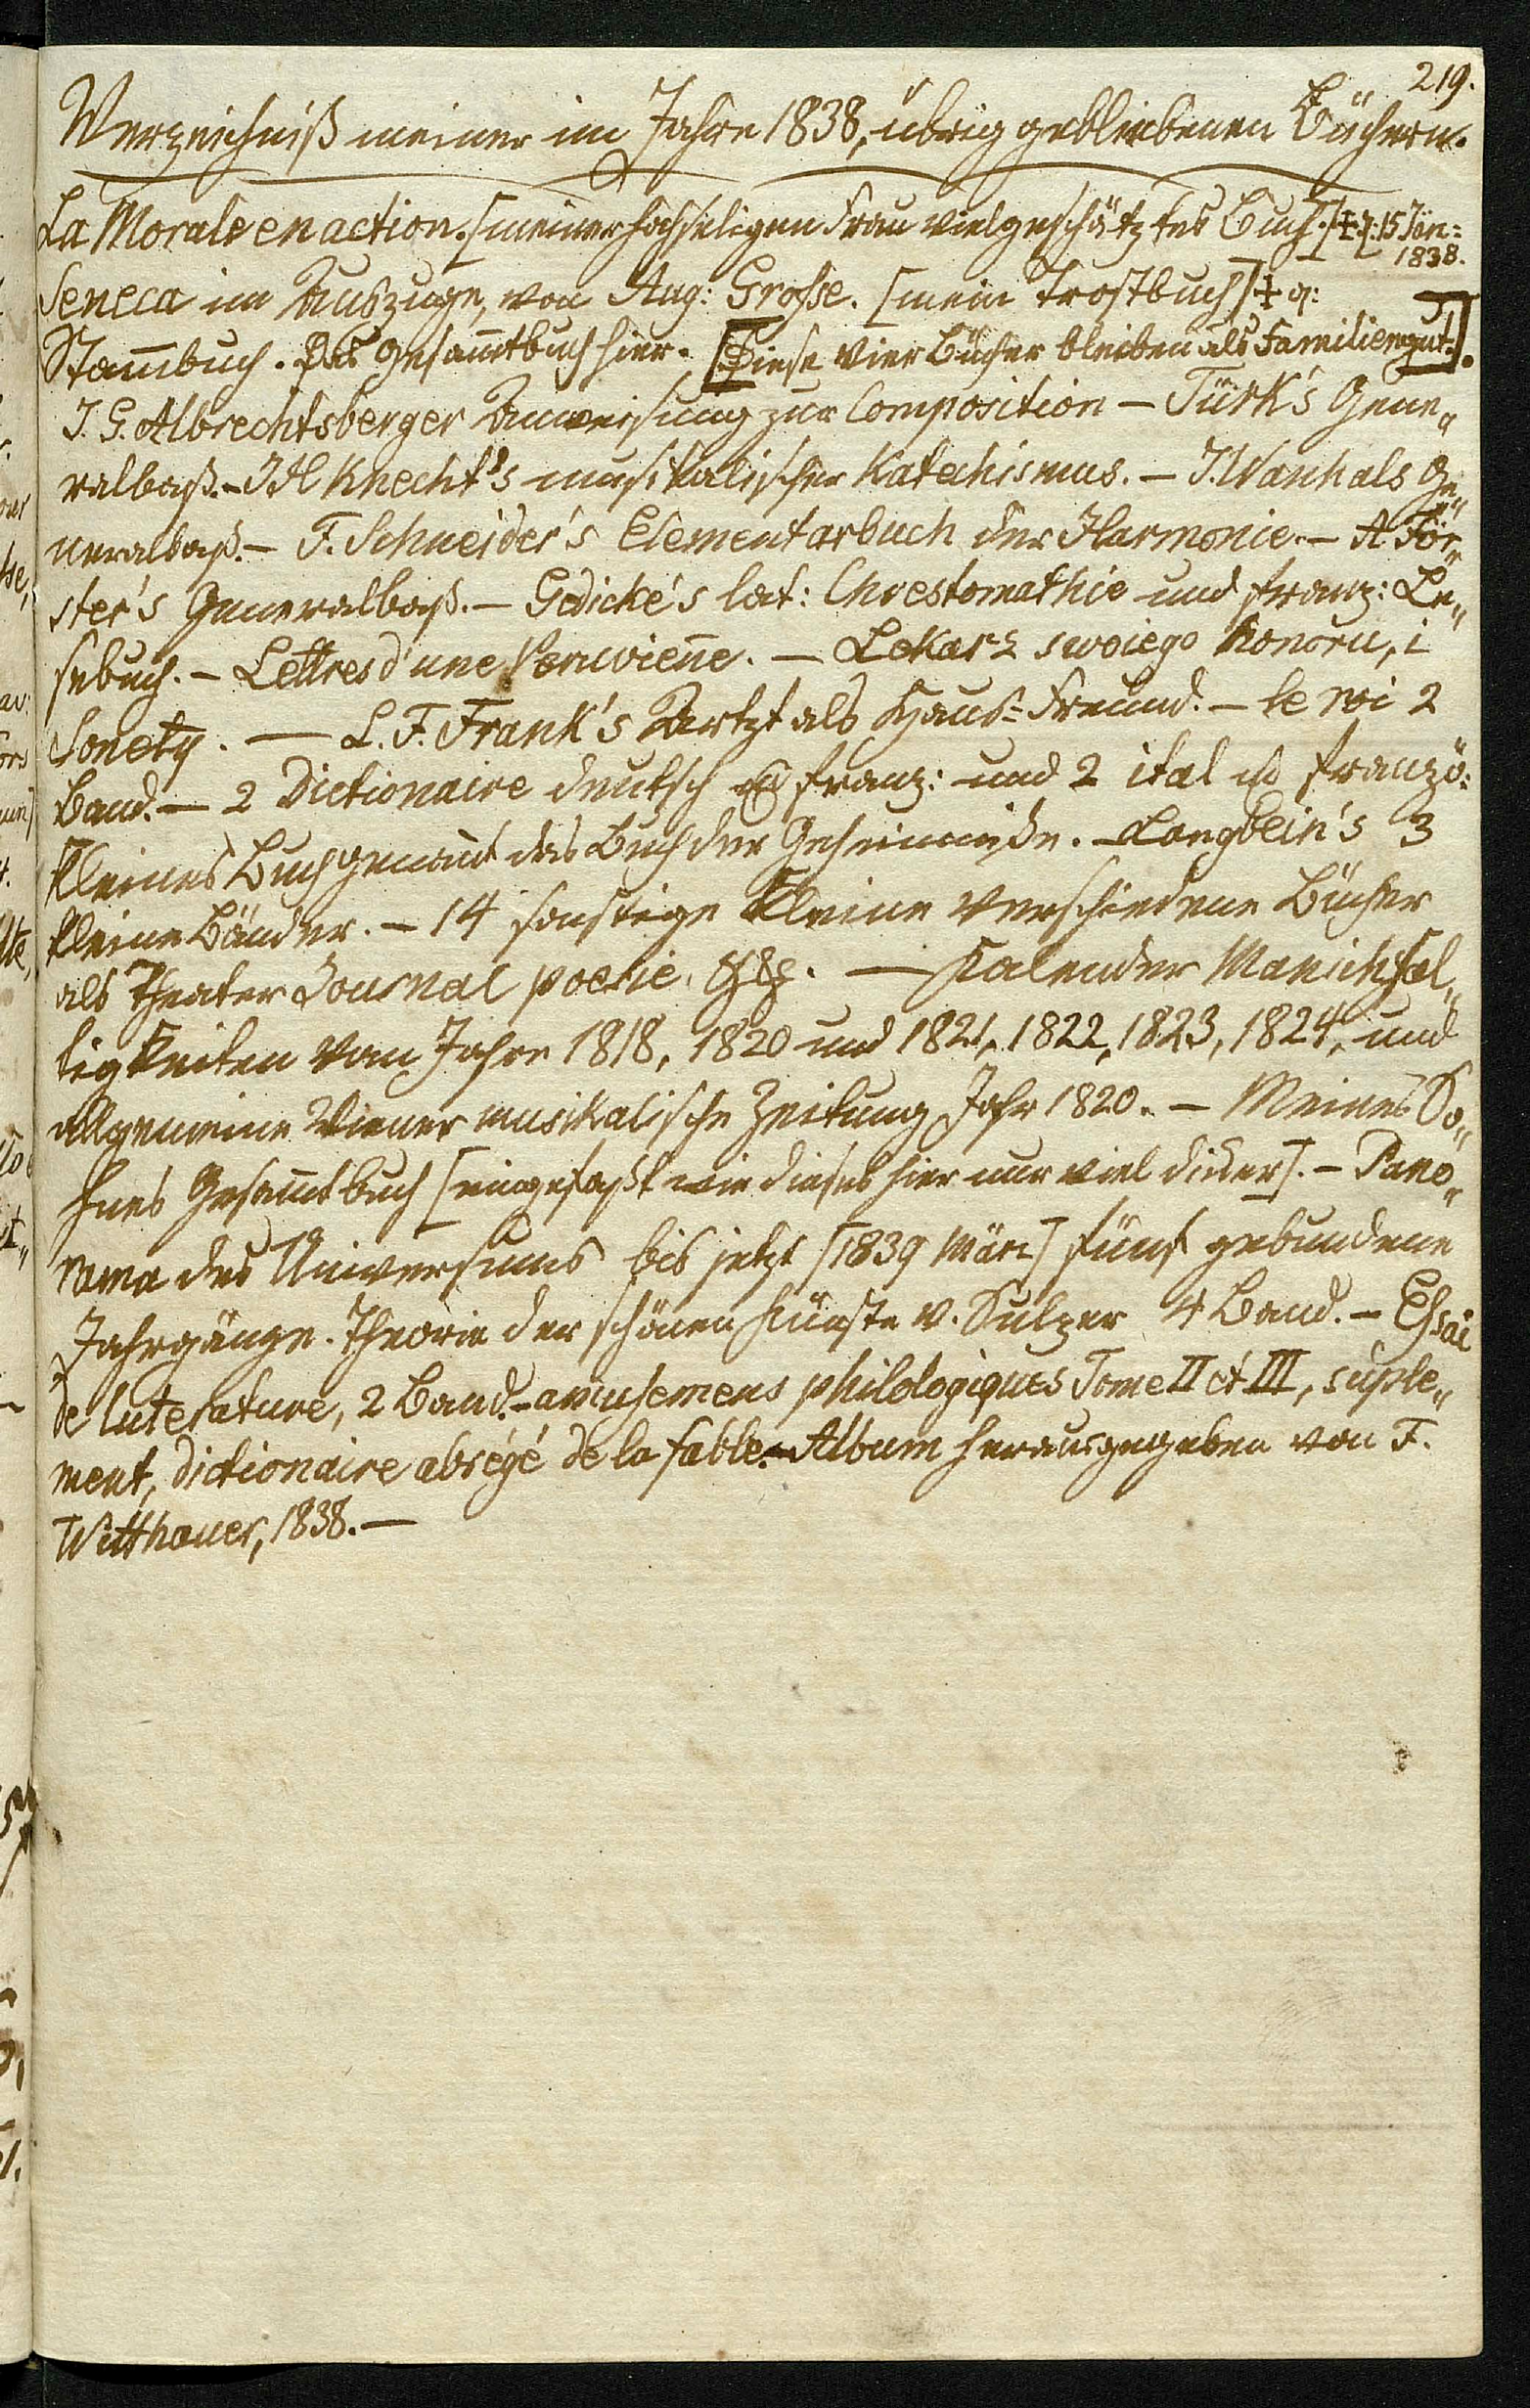 219.
Verzeichniß meiner im Jahre 1838, übrig gebliebenen Büchern.
La Morale en action. [meiner hochseligen Frau vielgeschätztes Buch.] ‡ 15 Jän=
1838.
Seneca im Auszuge, von Aug: Grosse. [mein Trostbuch] ‡
Stam̄buch. Das Gesam̄tbuch hier. [Diese vier Bücher bleiben als Familiengut.].
J. G. Albrechtsberger Anweisung zur Composition – Türk's Gene„
ralbaß. – J H Knecht's musikalischer Katechismus. – J. Wanhals Ge„
neralbaß. – F. Schneider's Elementarbuch der Harmonie. – A För„
ster's Generalbaß. – Gedicke's lat: Chrestomathie und franz: Le„
sebuch. – Lettres d'une Peruvien̄e. – Lekarz swoiego honoru, i
Sonety. – L. F. Frank's Artzt als Haus=Freund. – le roi 2
Band. – 2 Dictionaire deutsch franz: und 2 ital franzö:
kleines Buch genan̄t das Buch der Geheimniße. – Langbein's 3
kleine Bänder. – 14 sonstige kleine verschiedene Bücher
als Theater Journal poesie. &&. – Kalender Manichfal„
tigkeiten vom Jahre 1818, 1820 und 1821, 1822, 1823, 1824, und
allgemeine Wiener musikalische Zeitung Jahr 1820. – Meines So„
hnes Gesam̄tbuch [eingefaßt wie dieses hier nur viel dicker]. – Pano„
rama des Universums bis jetzt [1839 März] fünf gebundene
Jahrgänge. Theorie der schönen Künste v. Sulzer 4 Band. – Essai
de luterature, 2 Band. – amusemens philologiques Tome II et III, suple„
ment, dictionaire abrégé de la fable. – Album herausgegeben von F.
Witthauer, 1838. –